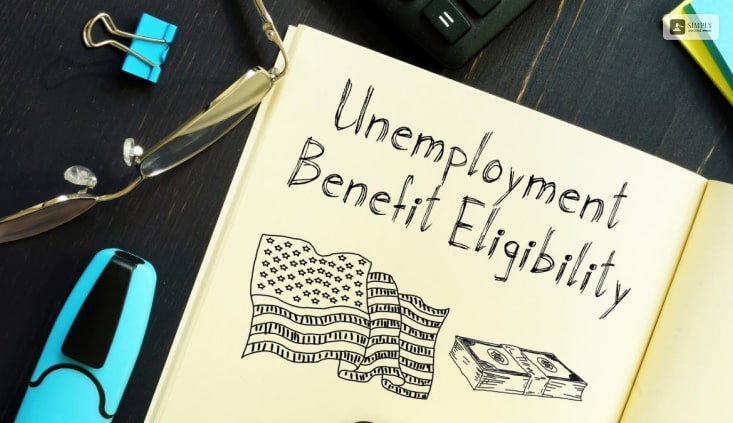 SIMPLY
Unemployment
Benefit Eligibility